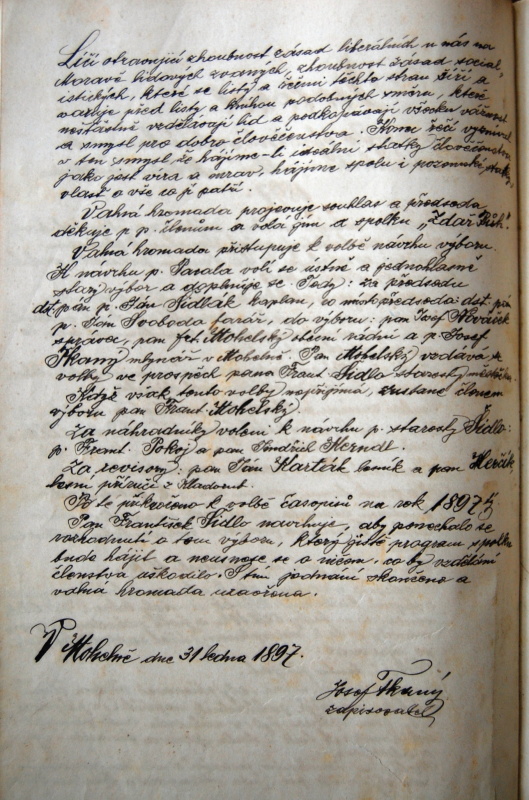 Líčí otravující zhoubnost zásad liberálních u nás na
Moravě lidových zvaných, zhoubnost zásad social-
istických, které se listy a řečmi těchto stran šíří a
varuje před listy a knihou podobných směrů, které
nešťastně vzdělávají lid a podkopávají všecku vážnost
a smysl pro dobro člověčenstva. Konče řečí
v ten smysl, že hájíme-li ideální statky člověčenstva
jako jest víra a mrav, hájíme spolu i pozemské statky,
vlast a vše co jí patří.
Valná hromada projevuje souhlas a předseda
děkuje p. p. členům a volá jim a spolku „Zdař Bůh“.
Valná hromada přistupuje k volbě návrhu výboru.
K návrhu p. Pasala volí se ústně a jednohlasně
starý výbor a doplňuje se tedy: za předsedu
dst. pán p. Ján Sidlák kaplan, co místopředseda: dst. pán
p. Jan Svoboda farář, do výboru: pan Josef Nováček
správce, pan frt. Mohelský stavební rádní a p. Josef
Tkaný mlynář v Mohelně. Pan Mohelský vzdává se
volby ve prospěch pana Frant. Sidlo starosty
Když však tento volby nepřijímá, zůstane členem
výboru pan Frant. Mohelský.
Za náhradníky voleni k návrhu p. starosty Sidlo:
p. Frant. Pokoj a pan Jindřich Herndl.
Za revisory: pan Ján Karták lesník a pan
Po té přikročeno k volbě časopisů na rok 1897
Pan František Sidlo navrhuje, aby ponechalo se
rozhodnutí o tom výboru, který jistě program spolku
bude hájit a neusnese se o ničem, co by vzdělání
členstva uškodilo. S tím jednání skončeno a
valná hromada uzavřena.
V Mohelně dne 31 ledna 1897.
Josef Tkaný
zapisovatel